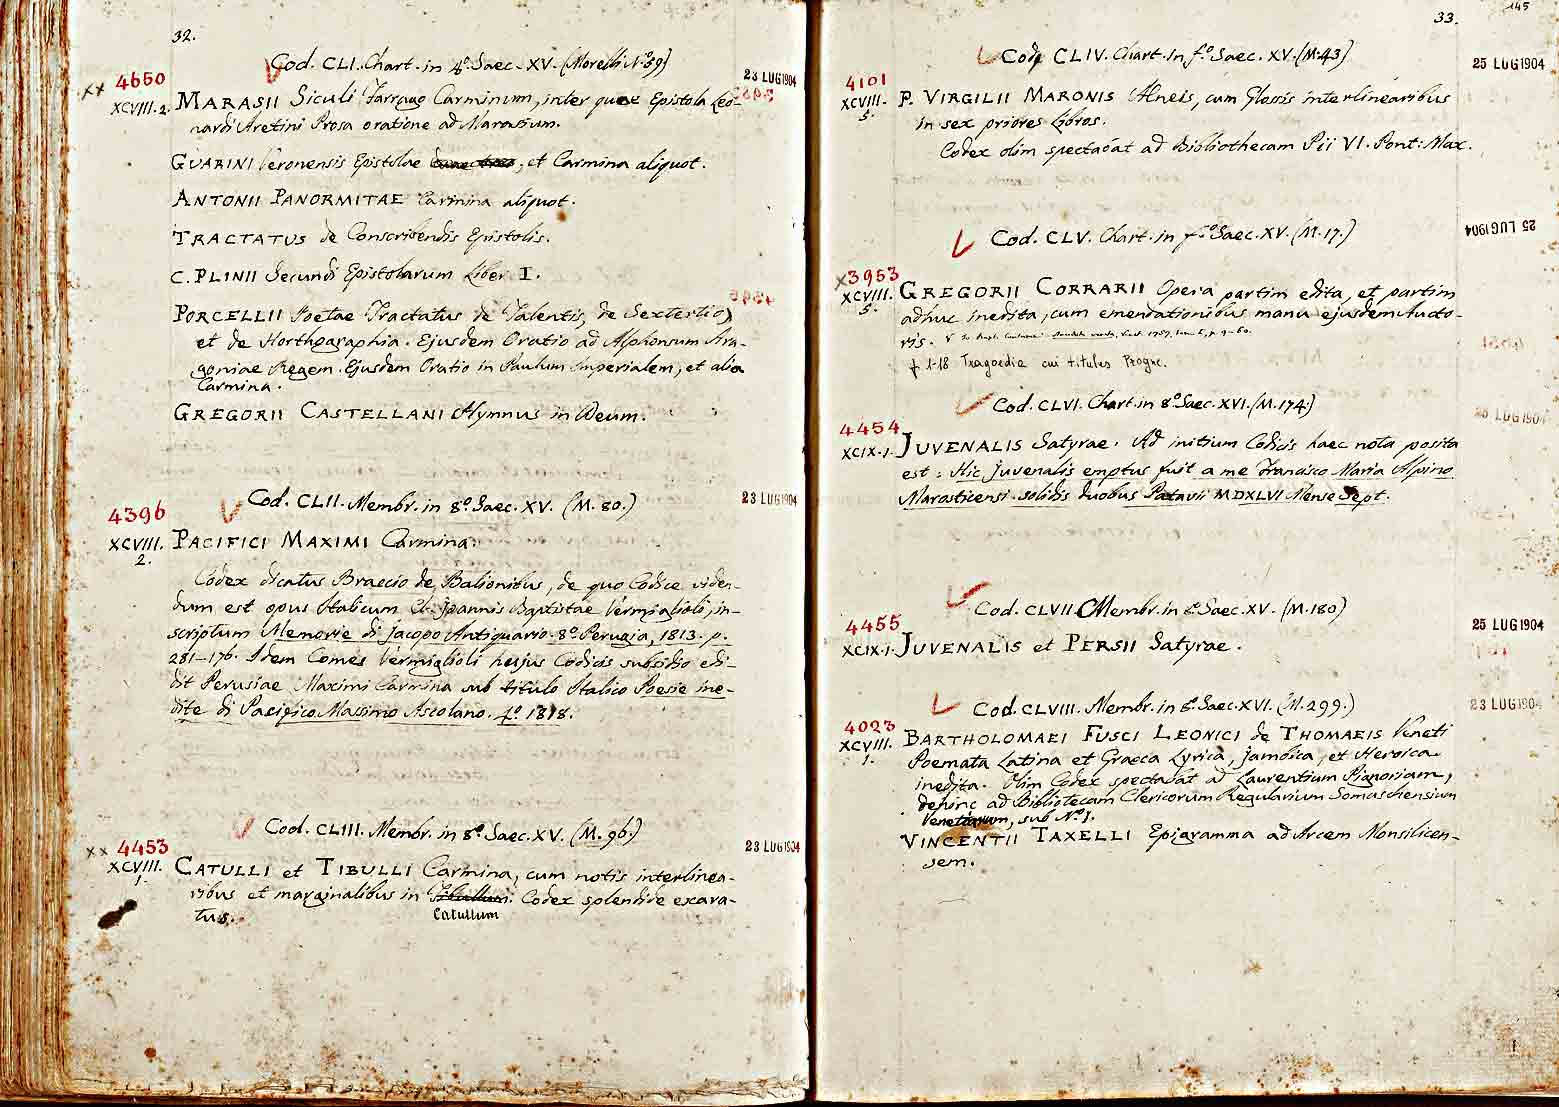 32.
Cod. CLI. Chart. in 4.º Saec. XV. (Morelli N.º 39)
23 LUG 1904
xx 4650
XCVIII. 2.
MARASII Siculi Farrago Carminum, inter quae Epistola Leo-
nardi Aretini Prosa oratione ad Marasium.
GUARINI Veronensis Epistolae, et Carmina aliquot.
ANTONII PANORMITAE Carmina aliquot.
TRACTATUS de Conscribendis Epistolis.
C. PLINII Secundi Epistolarum Liber I.
PORCELLII Poetae Tractatus de Talentis, de Sextertio,
et de Horthographia. Ejusdem Oratio ad Alphonsum Ara-
goniae Regem. Ejusdem Oratio in Paulum Imperialem, et alia
Carmina.
GREGORII CASTELLANI Hymnus in Deum.
Cod. CLII. Membr. in 8.º Saec. XV. (M. 80.)
23 LUG 1904
4396
XCVIII. 2.
PACIFICI MAXIMI Carmina.
Codex dicatus Braccio de Balionibus, de quo Codice viden-
dum est opus Italicum Cl. Joannis Baptistae Vermiglioli, in-
scriptum Memorie di Jacopo Antiquario. 8.º Perugia, 1813. p.
281-176. Idem Comes Vermiglioli hujus Codicis subsidio edi-
dit Perusiae Maximi Carmina sub titulo Italico Poesie ine-
dite di Pacifico Massimo Ascolano. 4.º 1818.
Cod. CLIII. Membr. in 8.º Saec. XV. (M. 96.)
23 LUG 1904
xx 4453
XCVIII. 1.
CATULLI et TIBULLI Carmina, cum notis interlinea-
ribus et marginalibus in Tibullum. Codex splendide exara-
Catullum
tus.
33.
145
Cod. CLIV. Chart. in f.º Saec. XV. (M. 43)
25 LUG 1904
4101
XCVIII. 5.
P. VIRGILII MARONIS Aeneis, cum Glossis interlinearibus
in sex priores Libros.
Codex olim spectabat ad Bibliothecam Pii VI. Pont: Max.
Cod. CLV. Chart. in f.º Saec. XV. (M. 17.)
25 LUG 1904
x3953
XCVIII. 5.
GREGORII CORRARII Opera partim edita, et partim
adhuc inedita, cum emendationibus manu ejusdem Aucto-
ris.
f 1-18 Tragoedia cui titulus Progne.
Cod. CLVI. Chart. in 8.º Saec. XVI. (M. 174.)
25 LUG 1904
4454
XCIX. 1.
JUVENALIS Satyrae. Ad initium Codicis haec nota posita
est: Hic Juvenalis emptus fuit a me Francisco Maria Alpino
Marosticensi solidis duobus Patavii MDXLVI Mense Sept.
Cod. CLVII. Membr. in 8.º Saec. XV. (M. 180)
25 LUG 1904
4455
XCIX. 1.
JUVENALIS et PERSII Satyrae.
Cod. CLVIII. Membr. in 8.º Saec. XVI. (M. 299.)
23 LUG 1904
4023
XCVIII. 1.
BARTHOLOMAEI FUSCI LEONICI de THOMAEIS Veneti
Poemata Latina et Graeca Lyrica, Jambica, et Heroica
inedita. Olim Codex spectabat ad Laurentium Pignoriam,
dehinc ad Bibliotecam Clericorum Regularium Somaschensium
Venetiarum, sub N.º 1.
VINCENTII TAXELLI Epigramma ad Arcem Monsilicen-
sem.